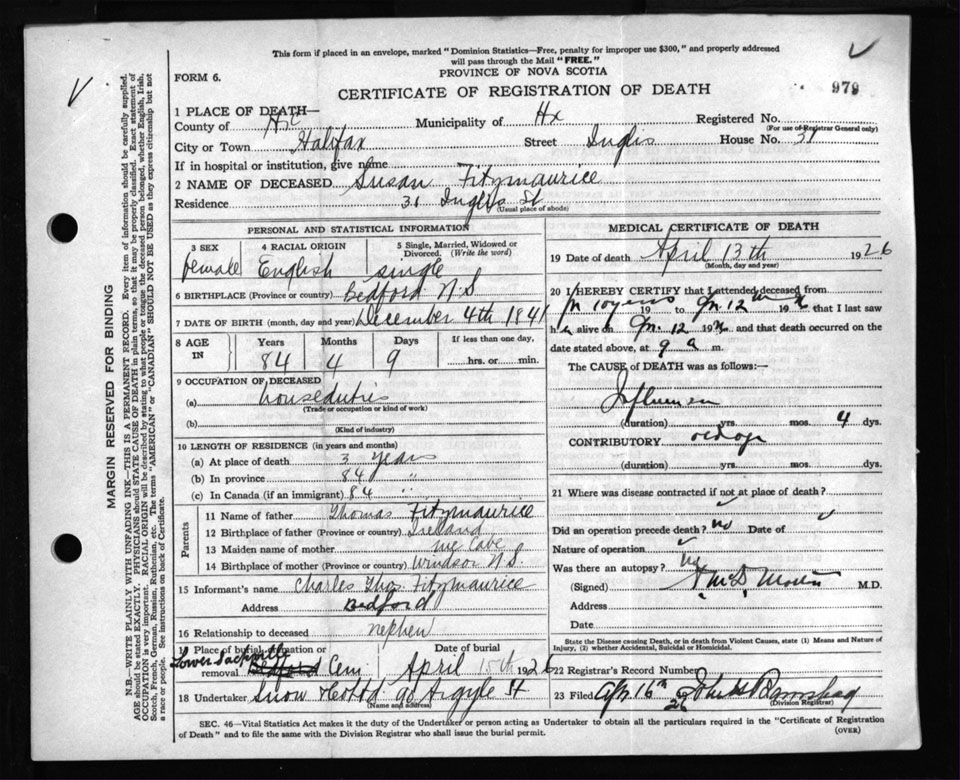 This form if placed in an envelope, marked "Dominion Statistics—Free, penalty for improper use $300," and properly addressed
will pass through the Mail "FREE."
FORM 6.
PROVINCE OF NOVA SCOTIA
CERTIFICATE OF REGISTRATION OF DEATH
979
1 PLACE OF DEATH—
County of Hx Municipality of Hx Registered No.
(For use of Registrar General only)
City or Town Halifax Street Inglis House No. 31
If in hospital or institution, give name
2 NAME OF DECEASED Susan Fitzmaurice
Residence 31 Inglis St
(Usual place of abode)
PERSONAL AND STATISTICAL INFORMATION
3 SEX 4 RACIAL ORIGIN 5 Single, Married, Widowed or Divorced. (Write the word)
female English single
6 BIRTHPLACE (Province or country) Bedford N.S
7 DATE OF BIRTH (month, day and year) December 4th 1841
8 AGE IN Years Months Days If less than one day,
84 4 9 hrs. or min.
9 OCCUPATION OF DECEASED
(a) houseduties
(Trade or occupation or kind of work)
(b)
(Kind of industry)
10 LENGTH OF RESIDENCE (in years and months)
(a) At place of death 3 years
(b) In province 84 "
(c) In Canada (if an immigrant) 84 "
Parents
11 Name of father Thomas Fitzmaurice
12 Birthplace of father (Province or country) Ireland
13 Maiden name of mother McCabe
14 Birthplace of mother (Province or country) Windsor N.S.
15 Informant's name Charles Thos. Fitzmaurice
Address Bedford
16 Relationship to deceased nephew
17 Place of burial, cremation or removal Lower Sackville Bedford Cem
Date of burial April 15th 1926
18 Undertaker Snow & Co Ltd 90 Argyle St
(Name and address)
MEDICAL CERTIFICATE OF DEATH
19 Date of death April 13th 1926
(Month, day and year)
20 I HEREBY CERTIFY that I attended deceased from
10 years 19 to 12th 19 that I last saw
h alive on 12 19 and that death occurred on the
date stated above, at 9 a m.
The CAUSE of DEATH was as follows:—
Influenza
(duration) yrs. mos. 4 dys.
CONTRIBUTORY old age
(duration) yrs. mos. dys.
21 Where was disease contracted if not at place of death?
Did an operation precede death? no Date of
Nature of operation
Was there an autopsy? no
(Signed) M.D.
Address
Date
State the Disease causing Death, or in death from Violent Causes, state (1) Means and Nature of
Injury, (2) whether Accidental, Suicidal or Homicidal.
22 Registrar's Record Number
23 Filed Apr 16th 26
(Division Registrar)
SEC. 46—Vital Statistics Act makes it the duty of the Undertaker or person acting as Undertaker to obtain all the particulars required in the "Certificate of Registration
of Death" and to file the same with the Division Registrar who shall issue the burial permit.
(OVER)
MARGIN RESERVED FOR BINDING
N.B.—WRITE PLAINLY WITH UNFADING INK—THIS IS A PERMANENT RECORD. Every item of information should be carefully supplied.
AGE should be stated EXACTLY. PHYSICIANS should STATE CAUSE OF DEATH in plain terms, so that it may be properly classified. Exact statement of
OCCUPATION is very important. RACIAL ORIGIN will be described by stating to what people or tongue the deceased person belonged, whether English, Irish,
Scotch, French, German, Russian, Ruthenian, etc. The terms "AMERICAN" or "CANADIAN" SHOULD NOT BE USED as they express citizenship but not
a race or people. See instructions on back of Certificate.